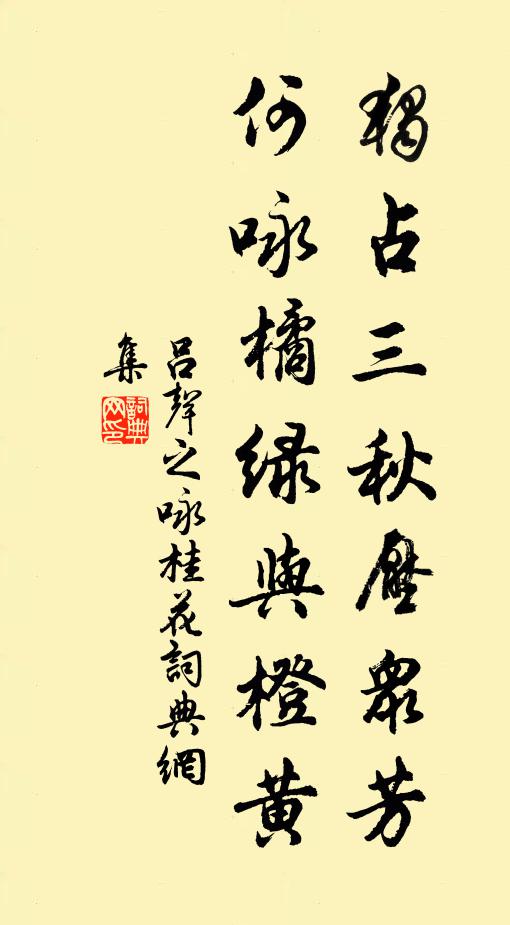 獨占三秋壓衆芳
何咏橘綠與橙黃
吕聲之咏桂花詞典網
集
詞典網印